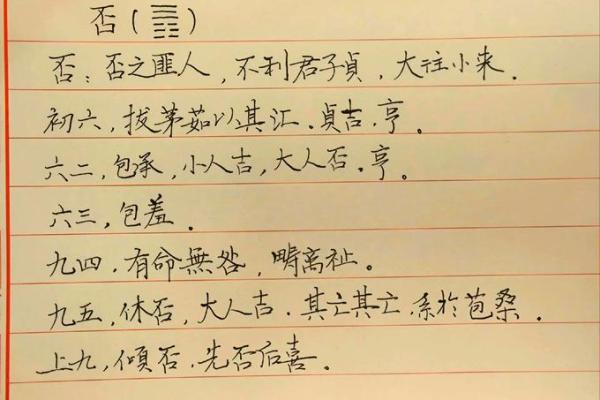 否(䷋)
否:否之匪人,不利君子貞,大往小来.
初六,拔茅茹以其汇.貞吉.亨。
六二,包承,小人吉,大人否.亨。
六三,包羞.
九四.有命無咎,疇离祉。
九五,休否,大人吉.其亡其亡,系於苞桑.
上九,傾否.先否后喜.